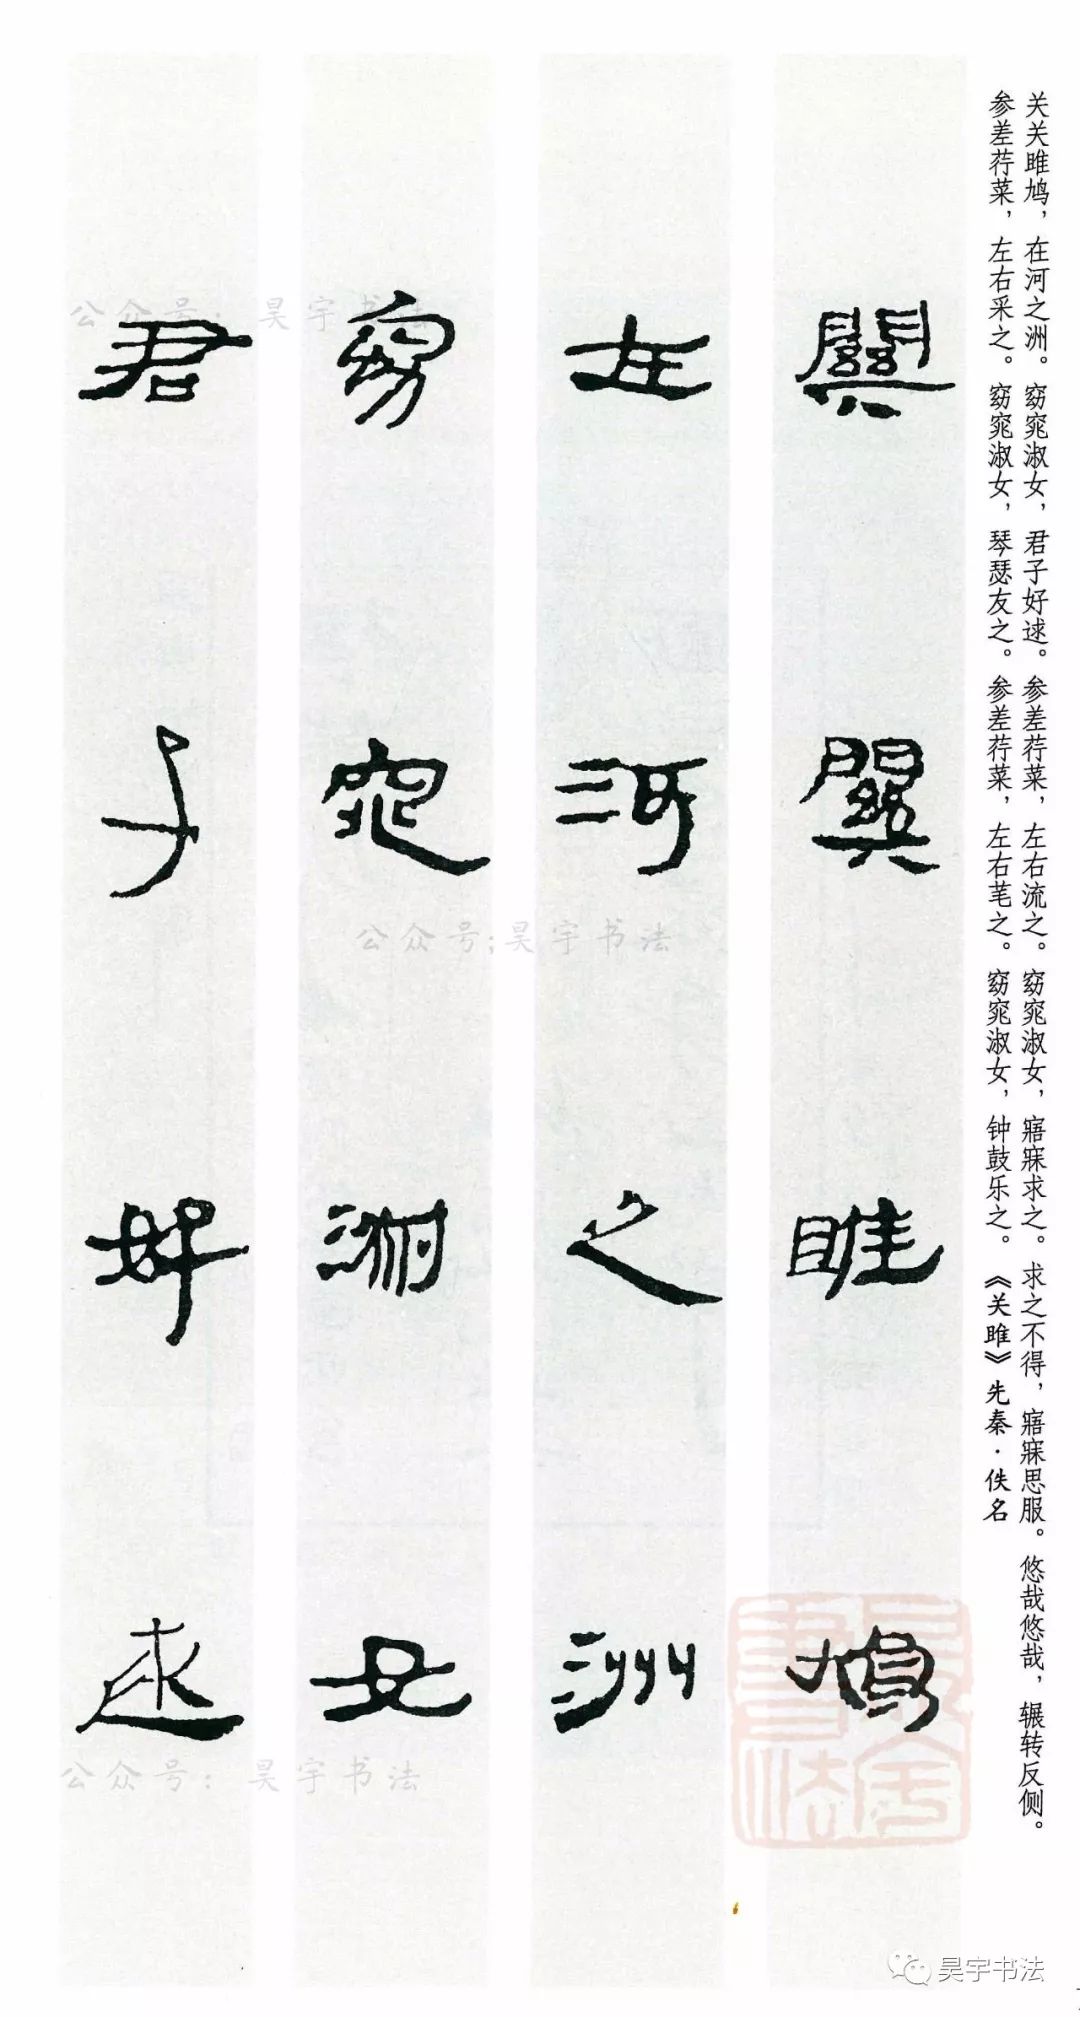 关关雎鸠，在河之洲。窈窕淑女，君子好逑。参差荇菜，左右流之。窈窕淑女，寤寐求之。求之不得，寤寐思服。悠哉悠哉，辗转反侧。
参差荇菜，左右采之。窈窕淑女，琴瑟友之。参差荇菜，左右芼之。窈窕淑女，钟鼓乐之。《关雎》先秦·佚名
關關雎鳩
在河之洲
窈窕淑女
君子好逑
公众号：昊宇书法
公众号;昊宇书法
公众号：昊宇书法
昊宇书法
昊宇书法